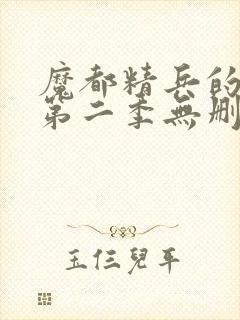 魔都精兵的
第二季無刪
玉仨兒平